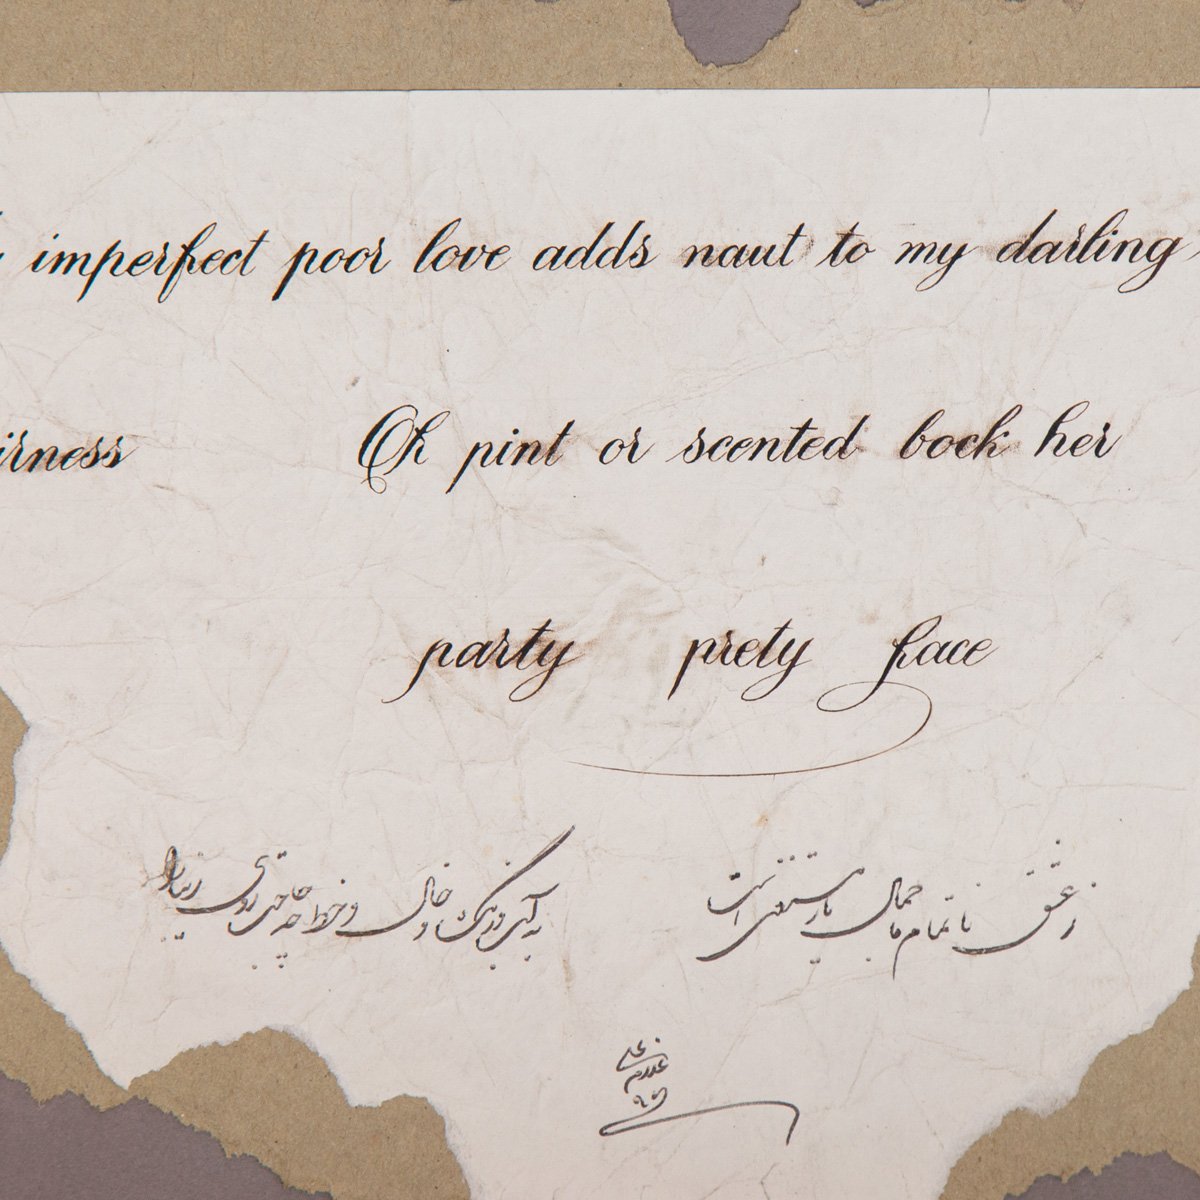 imperfect poor love adds naut to my darling
irness Oh pint or scented bock her
party prety face
ز عشق ناتمام ما جمال یار مستغنی است
به آب و رنگ و خال و خط چه حاجت روی زیبا را
غلامعلی